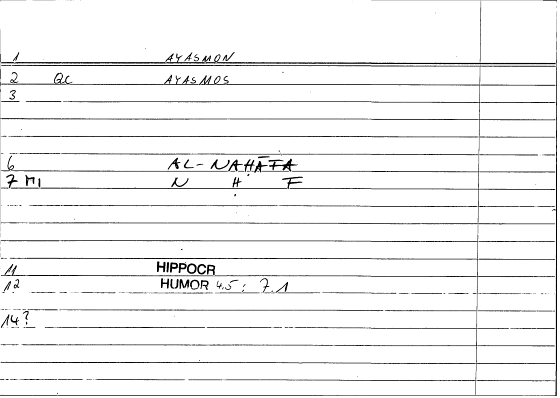 1 AYASMON
2 QC AYASMOS
3
6 AL-NAḤĀFA
7 MI N Ḥ F
11 HIPPOCR
12 HUMOR 4.5 : 7.1
14?